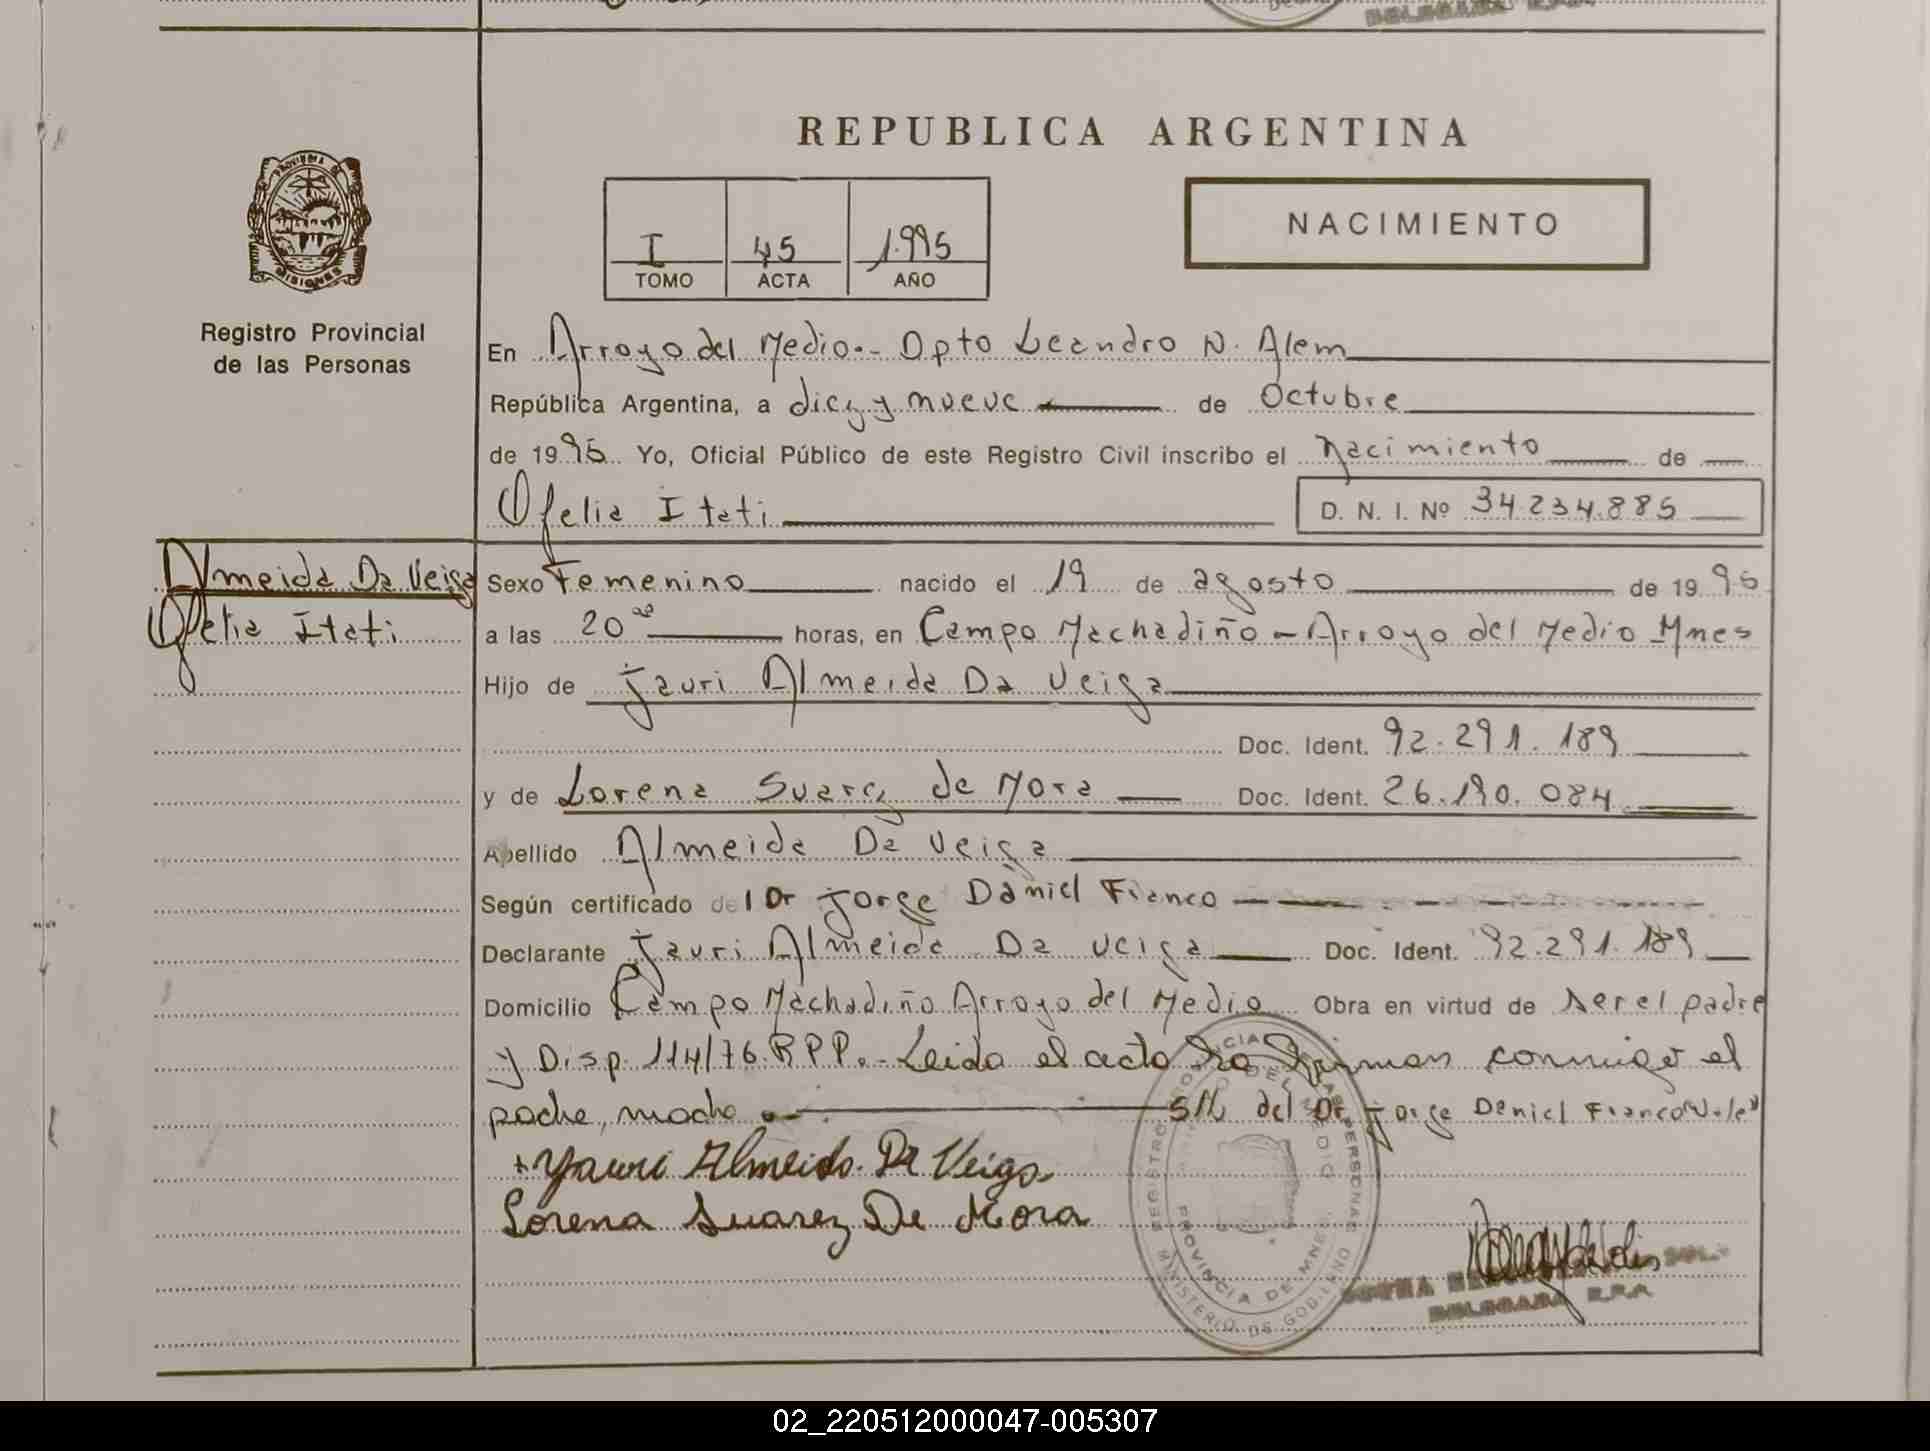 REPUBLICA ARGENTINA
PROVINCIA DE MISIONES
Registro Provincial
de las Personas
I 45 1.995
TOMO ACTA AÑO
NACIMIENTO
En Arroyo del Medio.- Dpto Leandro N. Alem
República Argentina, a diez y nueve de Octubre
de 1995 Yo, Oficial Público de este Registro Civil inscribo el Nacimiento de
Ofelia Itati D. N. I. Nº 34.234.885
Almeida Da Veiga
Ofelia Itati
Sexo Femenino nacido el 19 de agosto de 1995
a las 20 horas, en Campo Machadiño - Arroyo del Medio - Mnes
Hijo de Jauri Almeida Da Veiga
Doc. Ident. 92.291.189
y de Lorena Suarez de Mora Doc. Ident. 26.190.084
Apellido Almeida Da Veiga
Según certificado del Dr Jorge Daniel Franco
Declarante Jauri Almeida Da Veiga Doc. Ident. 92.291.189
Domicilio Campo Machadiño Arroyo del Medio Obra en virtud de ser el padre
y Disp. 114/76 R.P.P.- Leida el acta la firman conmigo el
padre, madre S/R del Dr Jorge Daniel Franco Vale
Yauri Almeida Da Veiga
Lorena Suarez De Mora
REGISTRO PROVINCIAL DE LAS PERSONAS
PROVINCIA DE MNES.
MINISTERIO DE GOBIERNO
DELEGADA R.P.P.
02_220512000047-005307